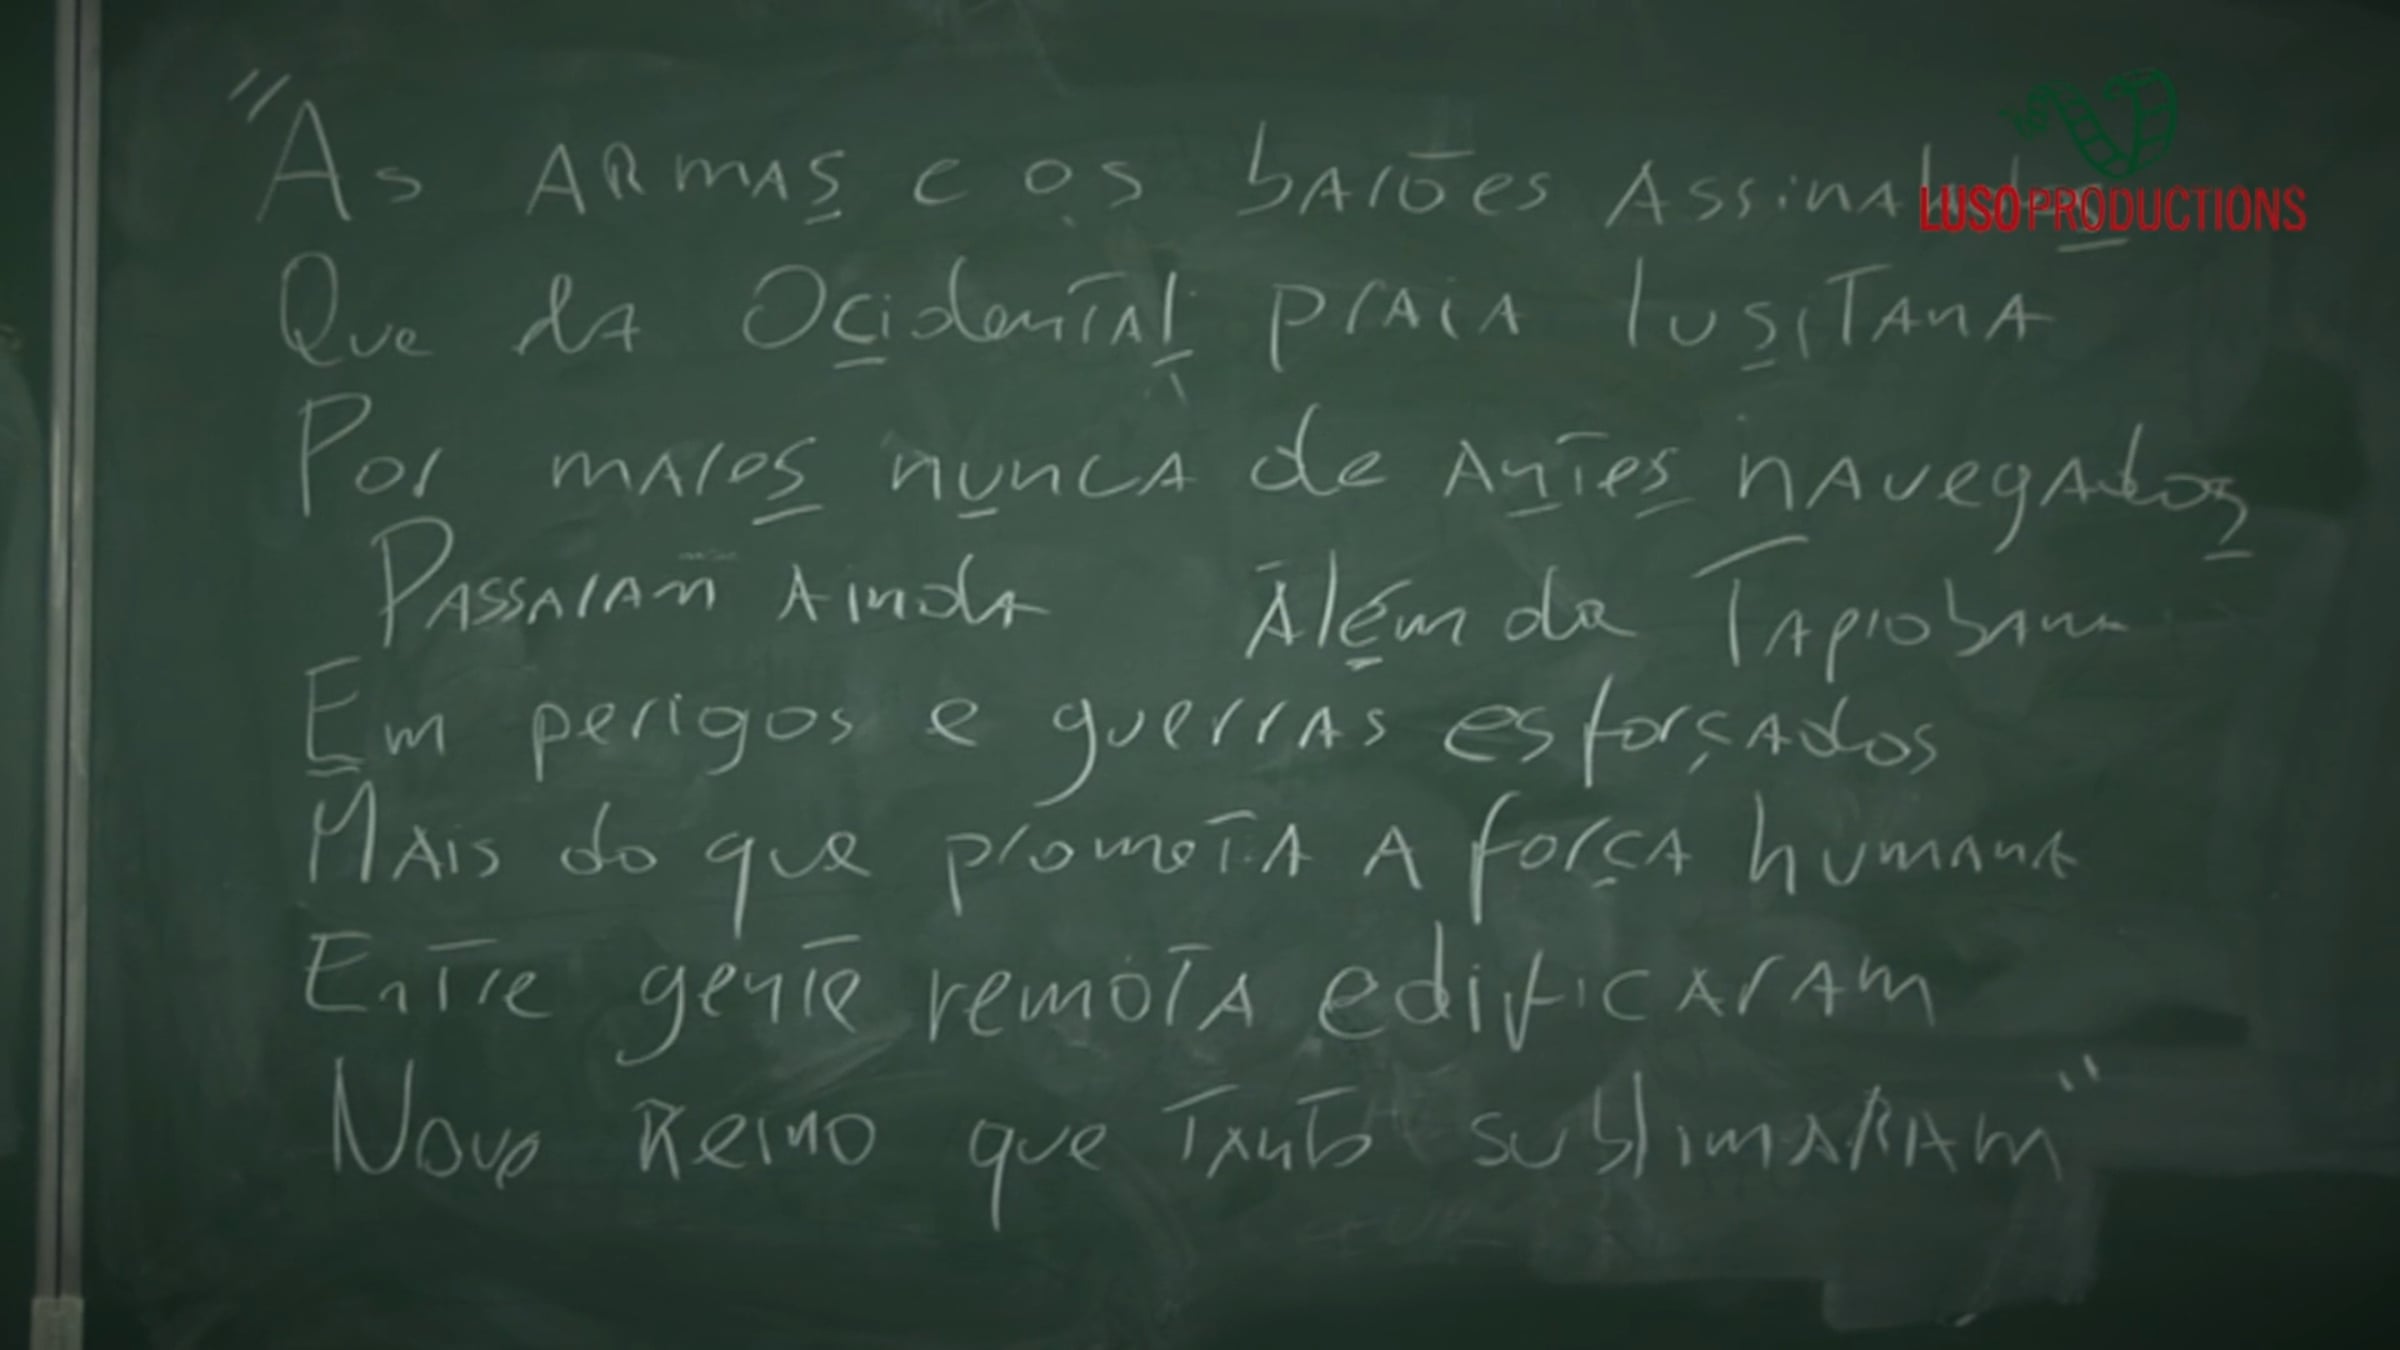 "As ARMAS e os barões Assinalados
LUSO PRODUCTIONS
Que da Ocidental praia lusitana
Por mares nunca de Antes navegados
Passaram Ainda Além da Taprobana
Em perigos e guerras esforçados
Mais do que prometia A força humana
Entre gente remota edificaram
Novo Reino que Tanto sublimaram"